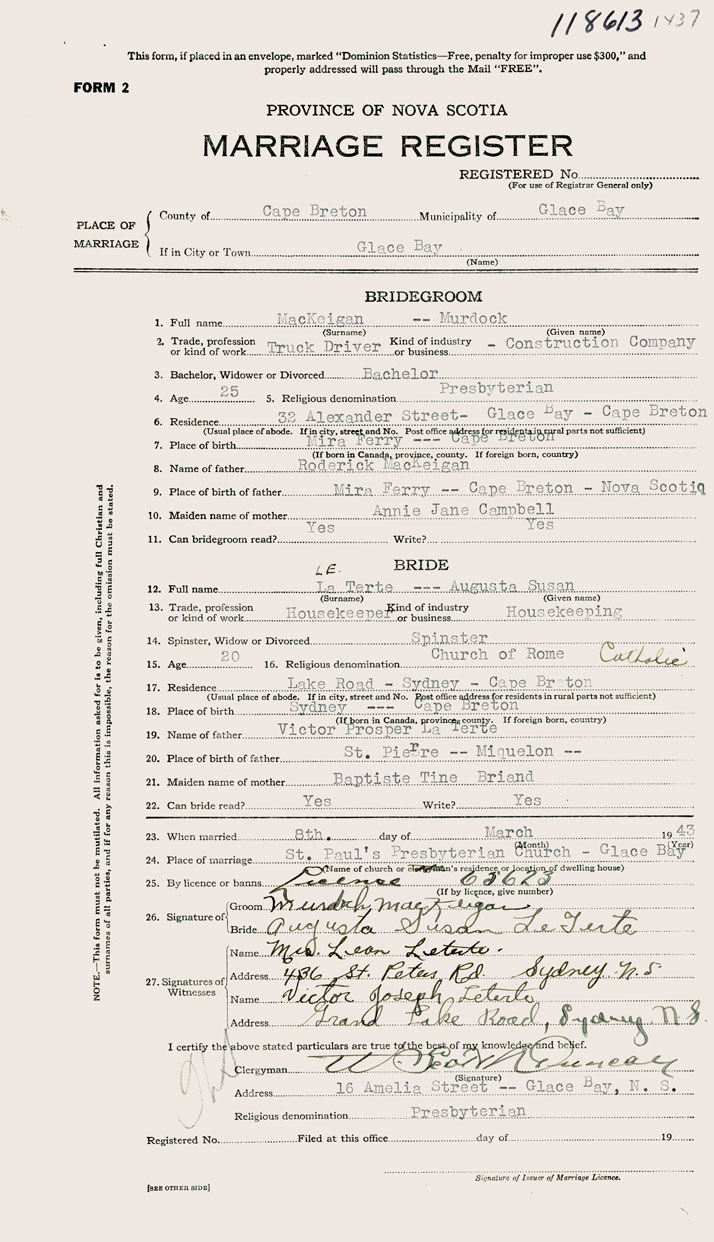 118613 1437
This form, if placed in an envelope, marked “Dominion Statistics—Free, penalty for improper use $300,” and
properly addressed will pass through the Mail “FREE”.
FORM 2
PROVINCE OF NOVA SCOTIA
MARRIAGE REGISTER
REGISTERED No
(For use of Registrar General only)
PLACE OF MARRIAGE
County of Cape Breton Municipality of Glace Bay
If in City or Town Glace Bay
(Name)
BRIDEGROOM
1. Full name MacKeigan -- Murdock
(Surname) (Given name)
2. Trade, profession or kind of work Truck Driver Kind of industry or business - Construction Company
3. Bachelor, Widower or Divorced Bachelor
4. Age 25 5. Religious denomination Presbyterian
6. Residence 32 Alexander Street- Glace Bay - Cape Breton
(Usual place of abode. If in city, street and No. Post office address for residents in rural parts not sufficient)
7. Place of birth Mira Ferry --- Cape Breton
(If born in Canada, province, county. If foreign born, country)
8. Name of father Roderick MacKeigan
9. Place of birth of father Mira Ferry -- Cape Breton - Nova Scotiq
10. Maiden name of mother Annie Jane Campbell
11. Can bridegroom read? Yes Write? Yes
BRIDE
LE.
12. Full name La Terte --- Augusta Susan
(Surname) (Given name)
13. Trade, profession or kind of work Housekeeper Kind of industry or business Housekeeping
14. Spinster, Widow or Divorced Spinster
15. Age 20 16. Religious denomination Church of Rome Catholic
17. Residence Lake Road - Sydney - Cape Breton
(Usual place of abode. If in city, street and No. Post office address for residents in rural parts not sufficient)
18. Place of birth Sydney --- Cape Breton
(If born in Canada, province, county. If foreign born, country)
19. Name of father Victor Prosper La Terte
20. Place of birth of father St. Pierre -- Miquelon --
21. Maiden name of mother Baptiste Tine Briand
22. Can bride read? Yes Write? Yes
23. When married 8th. day of March 19 43
(Month) (Year)
24. Place of marriage St. Paul's Presbyterian Church - Glace Bay
(Name of church or clergyman's residence or location of dwelling house)
25. By licence or banns Licence 63623
(If by licence, give number)
26. Signature of
Groom Murdoch MacKeigan
Bride Augusta Susan LeTerte
27. Signatures of Witnesses
Name Mrs. Leon Leterte.
Address 436 St. Peters Rd Sydney N.S.
Name Victor Joseph Leterte
Address Grand Lake Road, Sydney N.S.
I certify the above stated particulars are true to the best of my knowledge and belief.
Clergyman Duncan
(Signature)
Address 16 Amelia Street -- Glace Bay, N. S.
Religious denomination Presbyterian
Registered No. Filed at this office day of 19
Signature of Issuer of Marriage Licence.
[SEE OTHER SIDE]
NOTE.—This form must not be mutilated. All information asked for is to be given, including full Christian and
surnames of all parties, and if for any reason this is impossible, the reason for the omission must be stated.